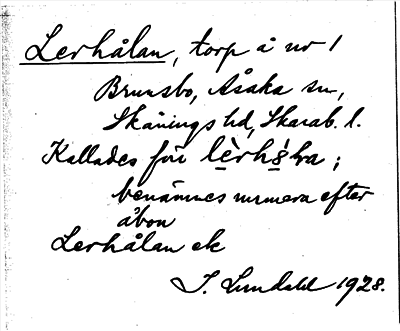 Lerhålan, torp å nr 1
Brunsbo, Åsaka sn,
Skånings hd, Skarab. l.
Kallades förr lèrhòla;
benämnes numera efter
åbon
Lerhålan ek
I. Lundahl 1928.